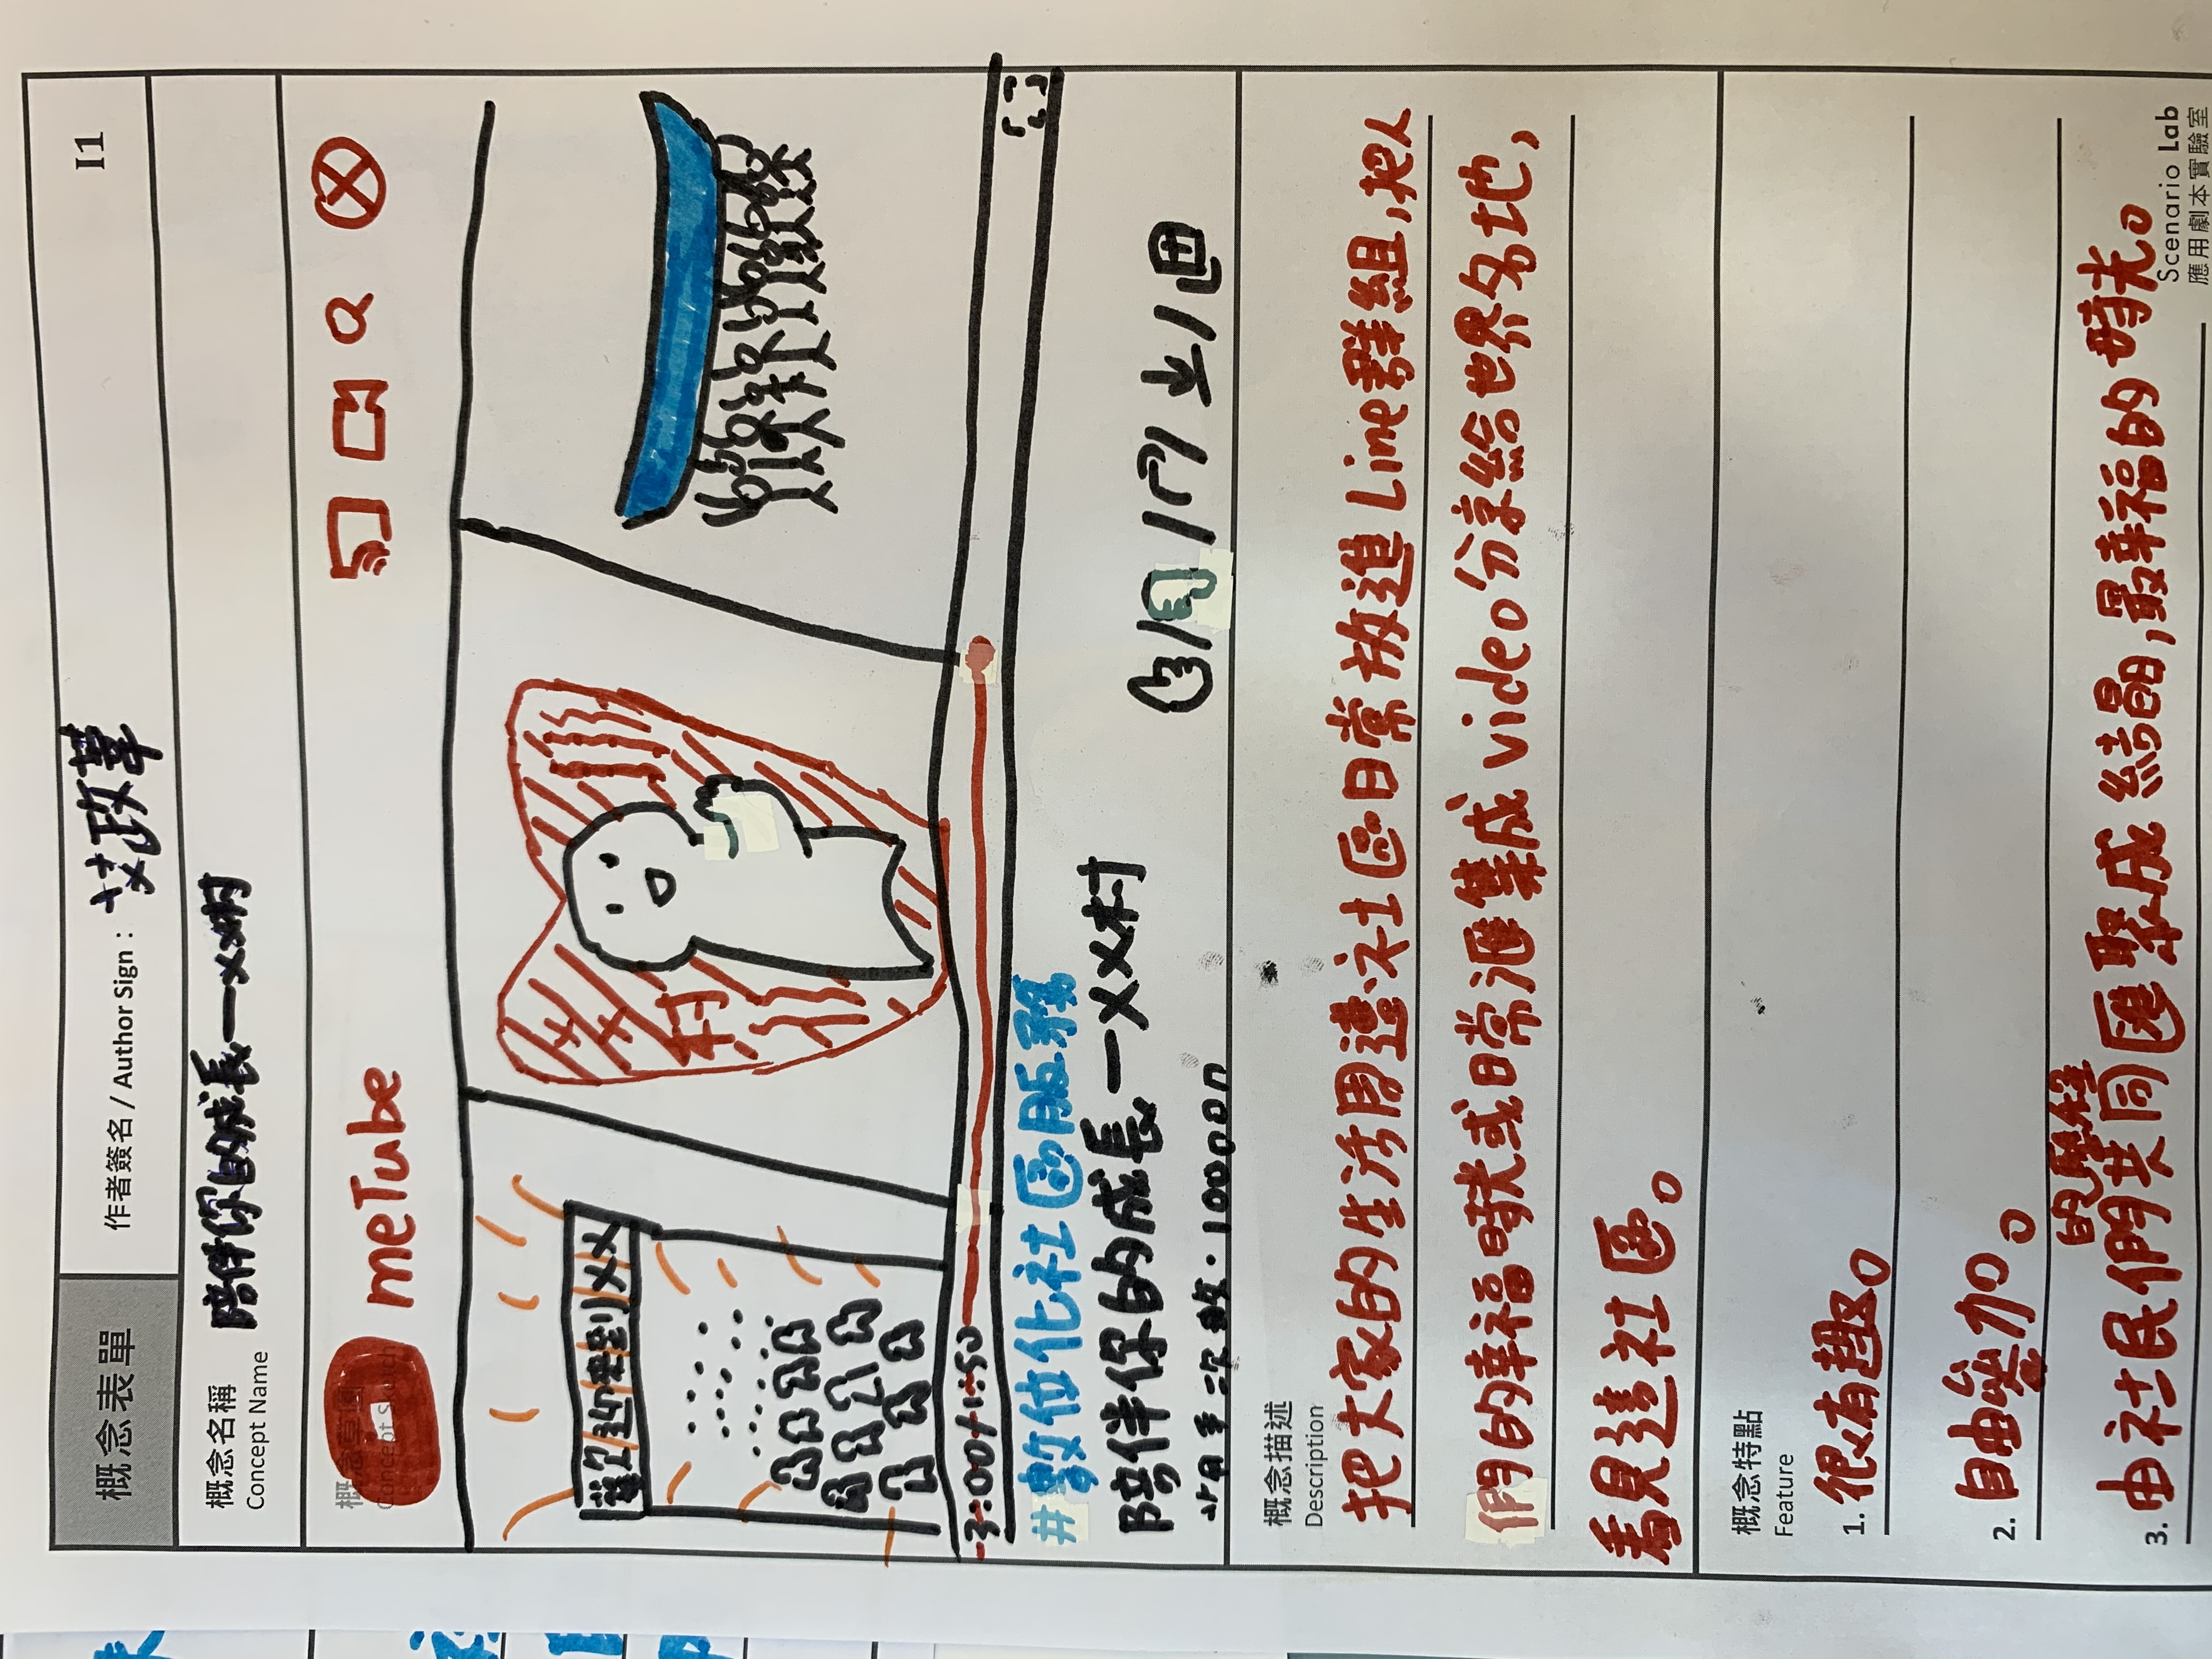 概念表單
作者簽名 / Author Sign：艾政葦
I1
概念名稱
Concept Name
陪伴你的成長—××村
概念草圖
Concept Sketch
meTube
歡迎來到××
××村
3:00/1:50
#數位化社區服務
陪伴你的成長—××村
次數：100000
概念描述
Description
把大家的生活周遭、社區日常放進Line群組,把人
們的幸福時光或日常滙集成video分享給世界各地,
看見這社區。
概念特點
Feature
1. 很有趣。
2. 自由參加。
的歷程
3. 由社民們共同匯聚成結晶,最幸福的時光。
Scenario Lab
應用劇本實驗室